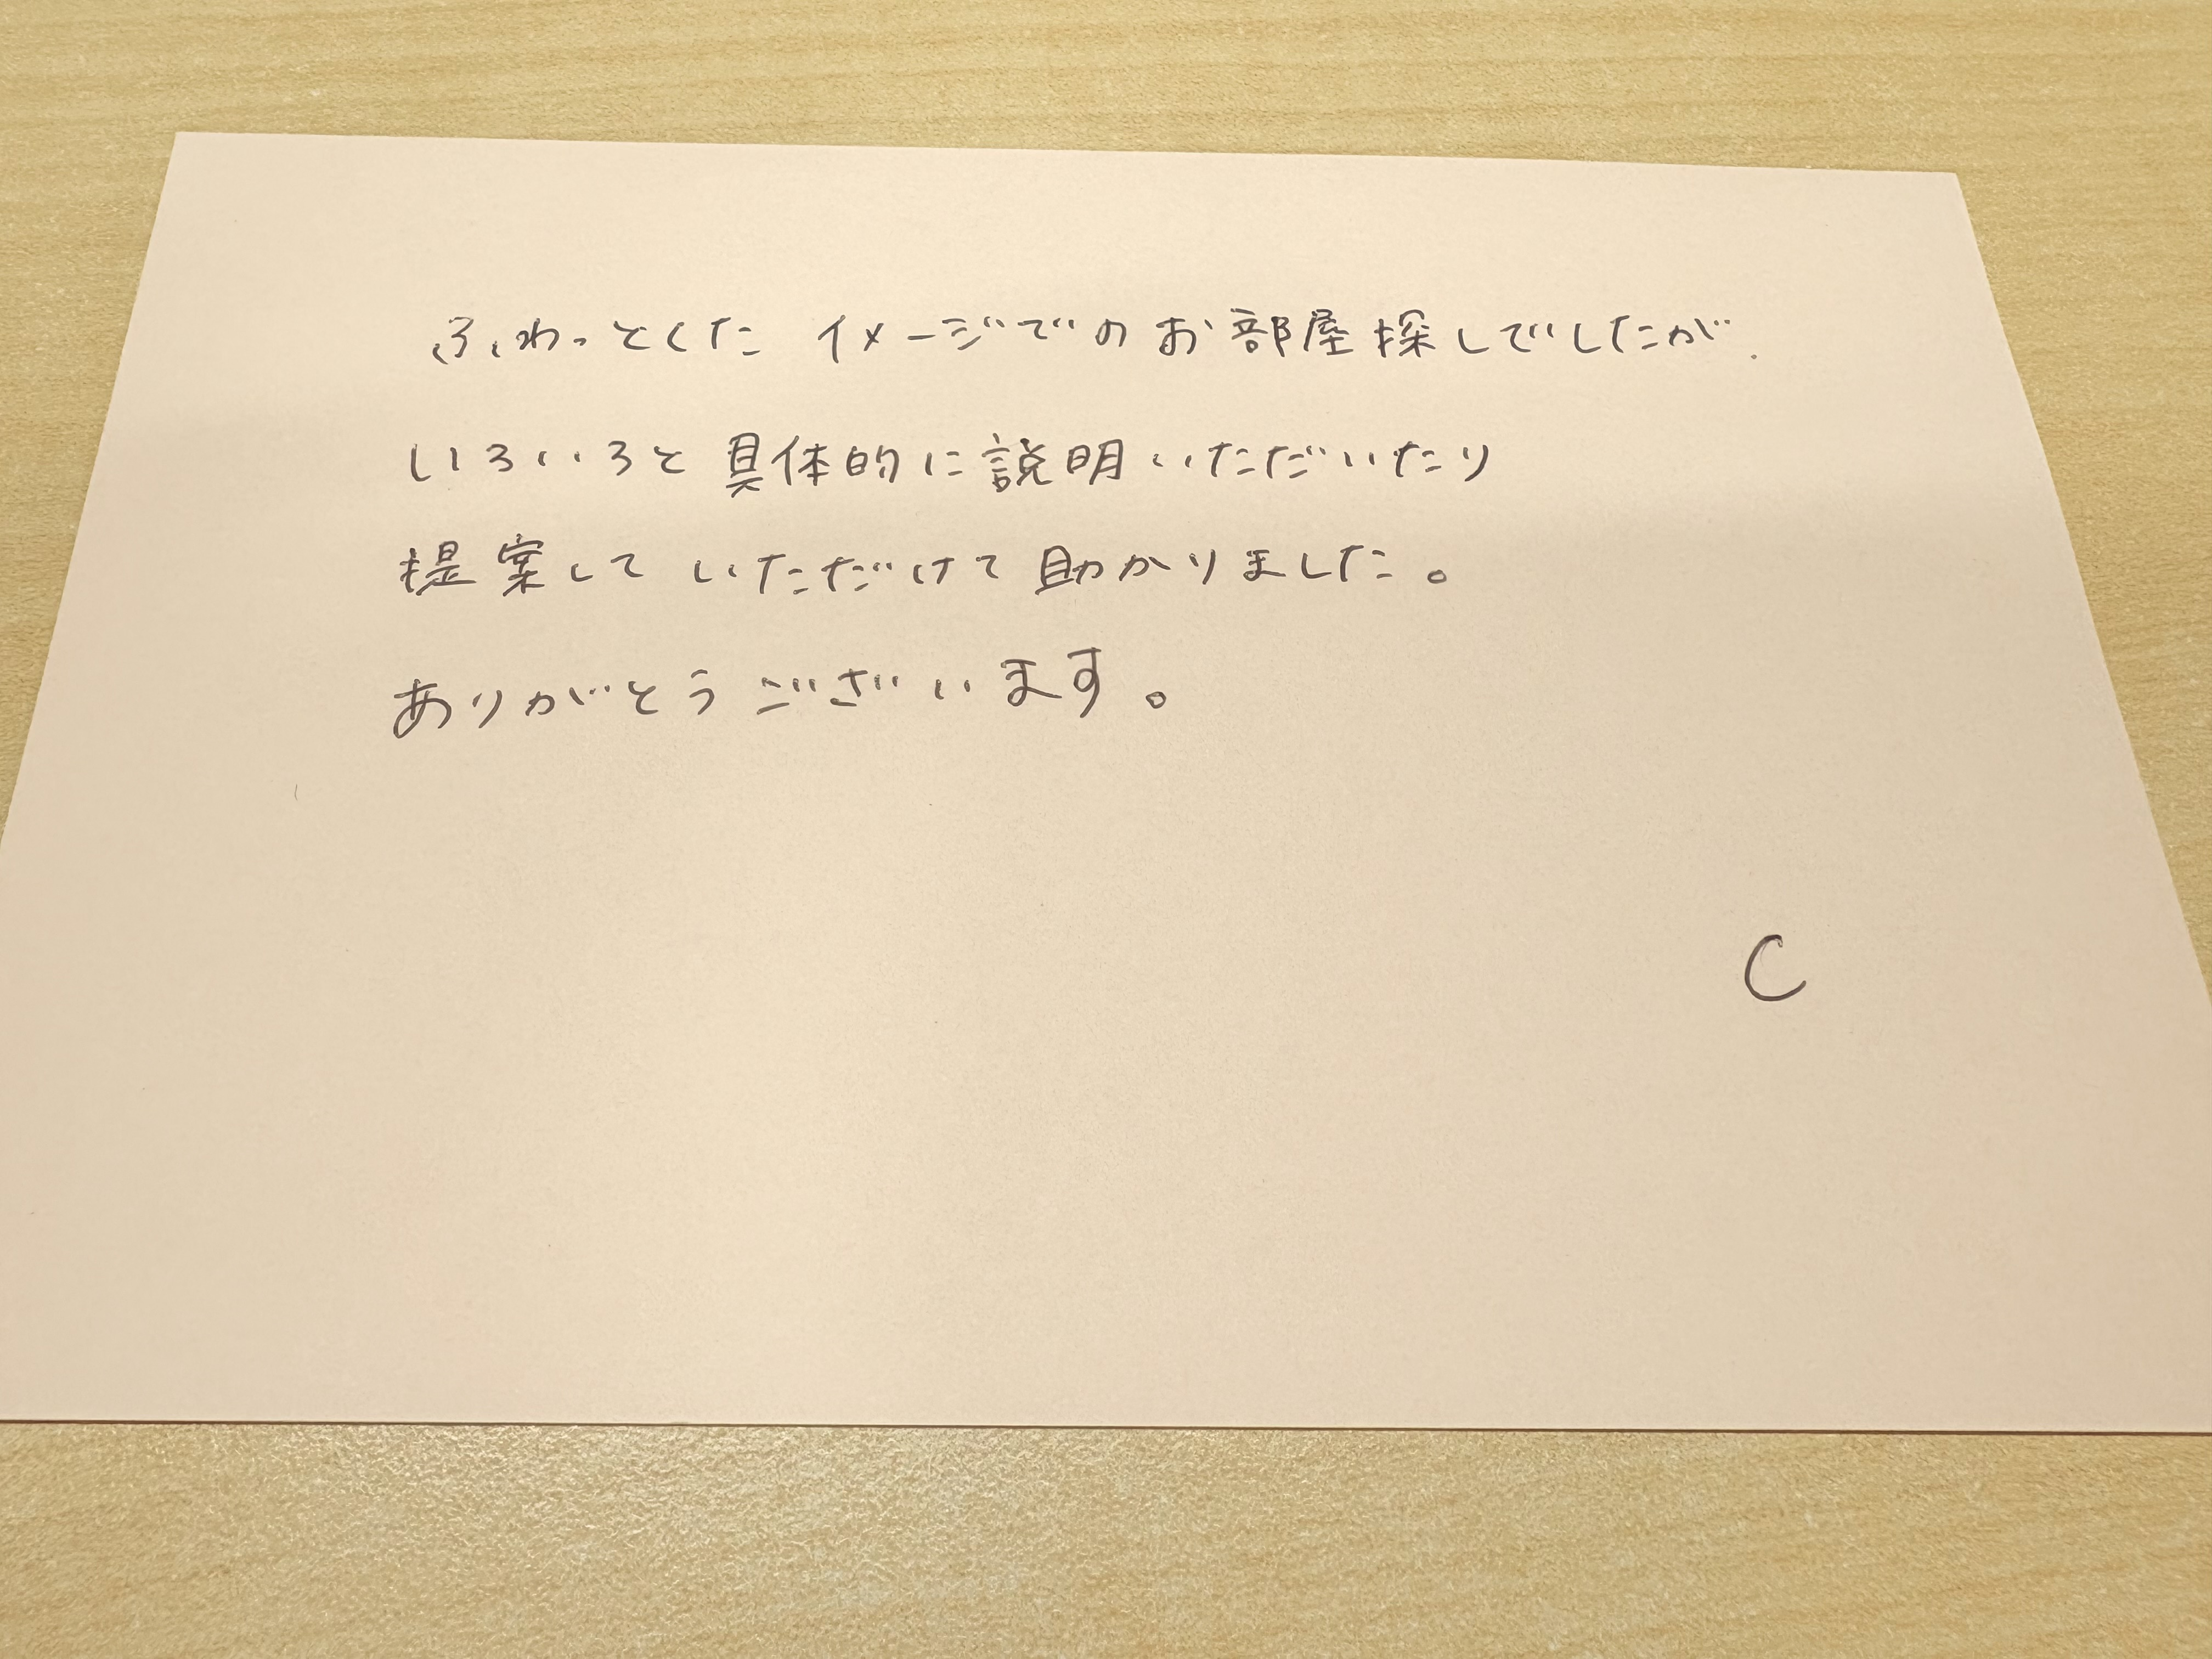 ふわっとくた イメージでのお部屋探しでしたが、
いろいろと具体的に説明いただいたり
提案していただけて助かりました。
ありがとうございます。
C